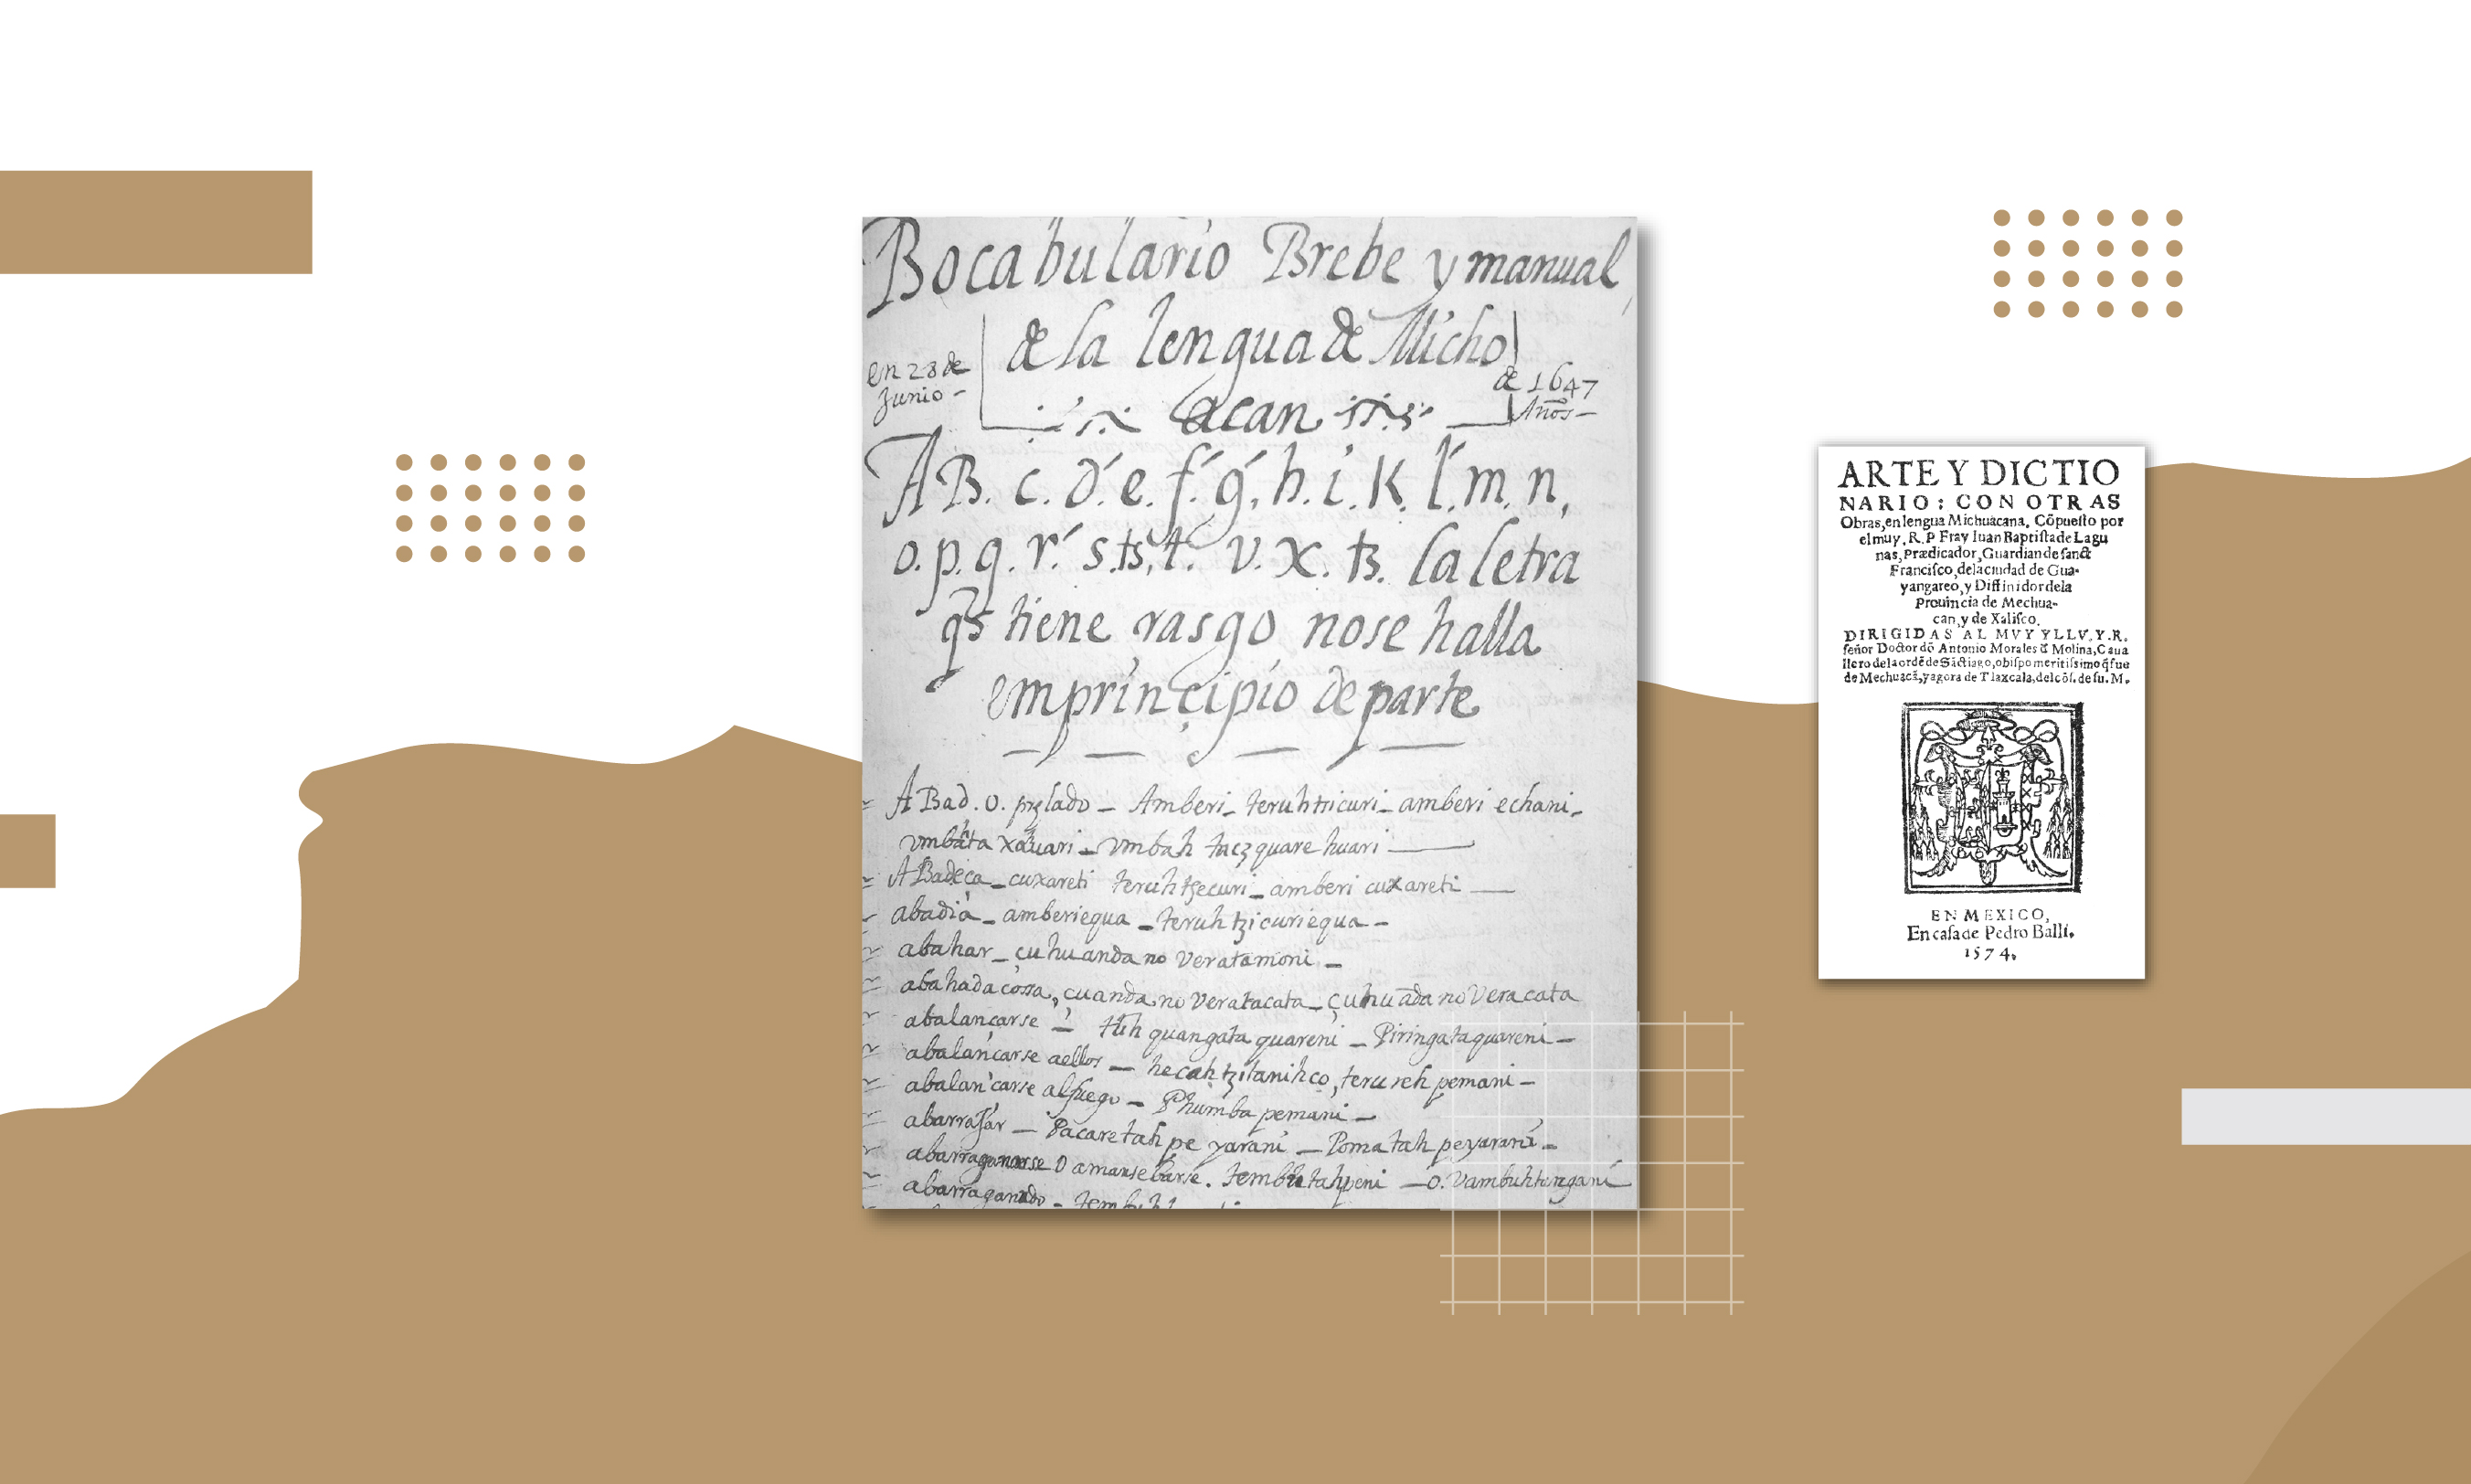 Bocabulario Brebe y manual,
de la lengua de Micho
en 28 de
Junio -
de 1647
Años -
acan
A B. c. d. e. f. g. h. i. K. l. m. n,
o. p. q. r. s. ts. t. v. x. tz. la letra
q̃ tiene rasgo no se halla
em prinçipio de parte
ABad. o. prelado - Amberi - amberi echani -
vmbah quare huari
ABadeça - cuxareti teruhtzecuri - amberi cuxareti
abadia - amberiequa - teruhtzicuriequa -
abahar - çuhuanda no veratamoni -
abahada cossa, cuanda no veratacata - çuhuãda no veracata
abalançarse - quangata quareni - Piringataquareni -
abalançarse aellos - teru reh pemani -
abalançarse alfuego - Phumba pemani -
abarrajar - Pacaretah pe yarani - Pomatah peyarani -
o amansebarse.
abarraganado -
ARTE Y DICTIO
NARIO: CON OTRAS
Obras, en lengua Michuacana. Cõpuesto por
el muy. R. P Fray Iuan Baptista de Lagu
nas, Prædicador, Guardian de sanct
Francisco, de la ciudad de Gua-
yangareo, y Diffinidor de la
Prouincia de Mechua-
can, y de Xalisco.
DIRIGIDAS AL MVY YLLV. Y. R.
señor Doctor dõ Antonio Morales đ Molina, Caua
llero de la ordẽ de Sãctiago, obispo meritissimo q̃ fue
de Mechuacã, y agora de Tlaxcala, del cõs. de su. M.
EN MEXICO,
En casa de Pedro Balli.
1574.